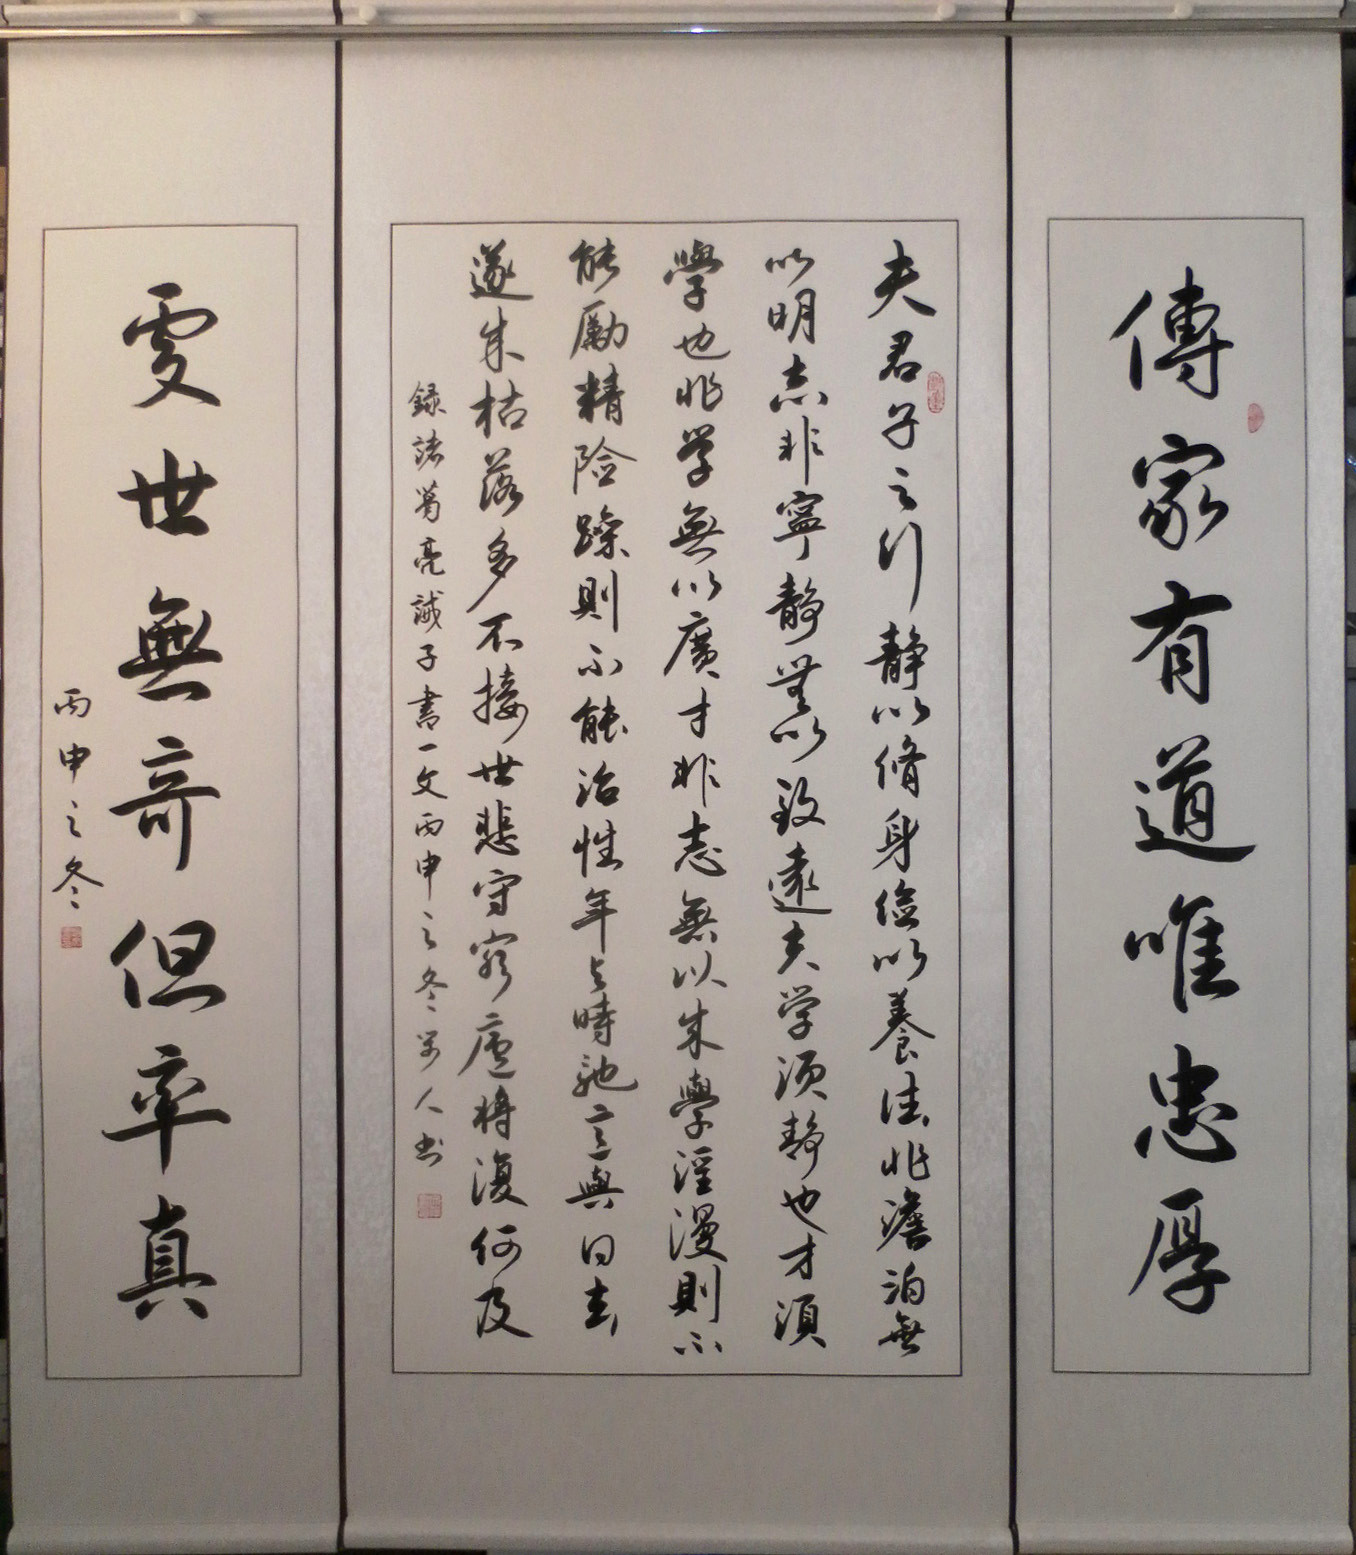 傳家有道唯忠厚
夫君子之行靜以脩身儉以養德非澹泊無
以明志非寧靜無以致遠夫学須静也才須
學也非学無以廣才非志無以成學淫漫則不
能勵精險躁則不能治性年与時馳意與日去
遂成枯落多不接世悲守窮廬將復何及
録諸葛亮誡子書一文丙申之冬 人书
處世無奇但率真
丙申之冬